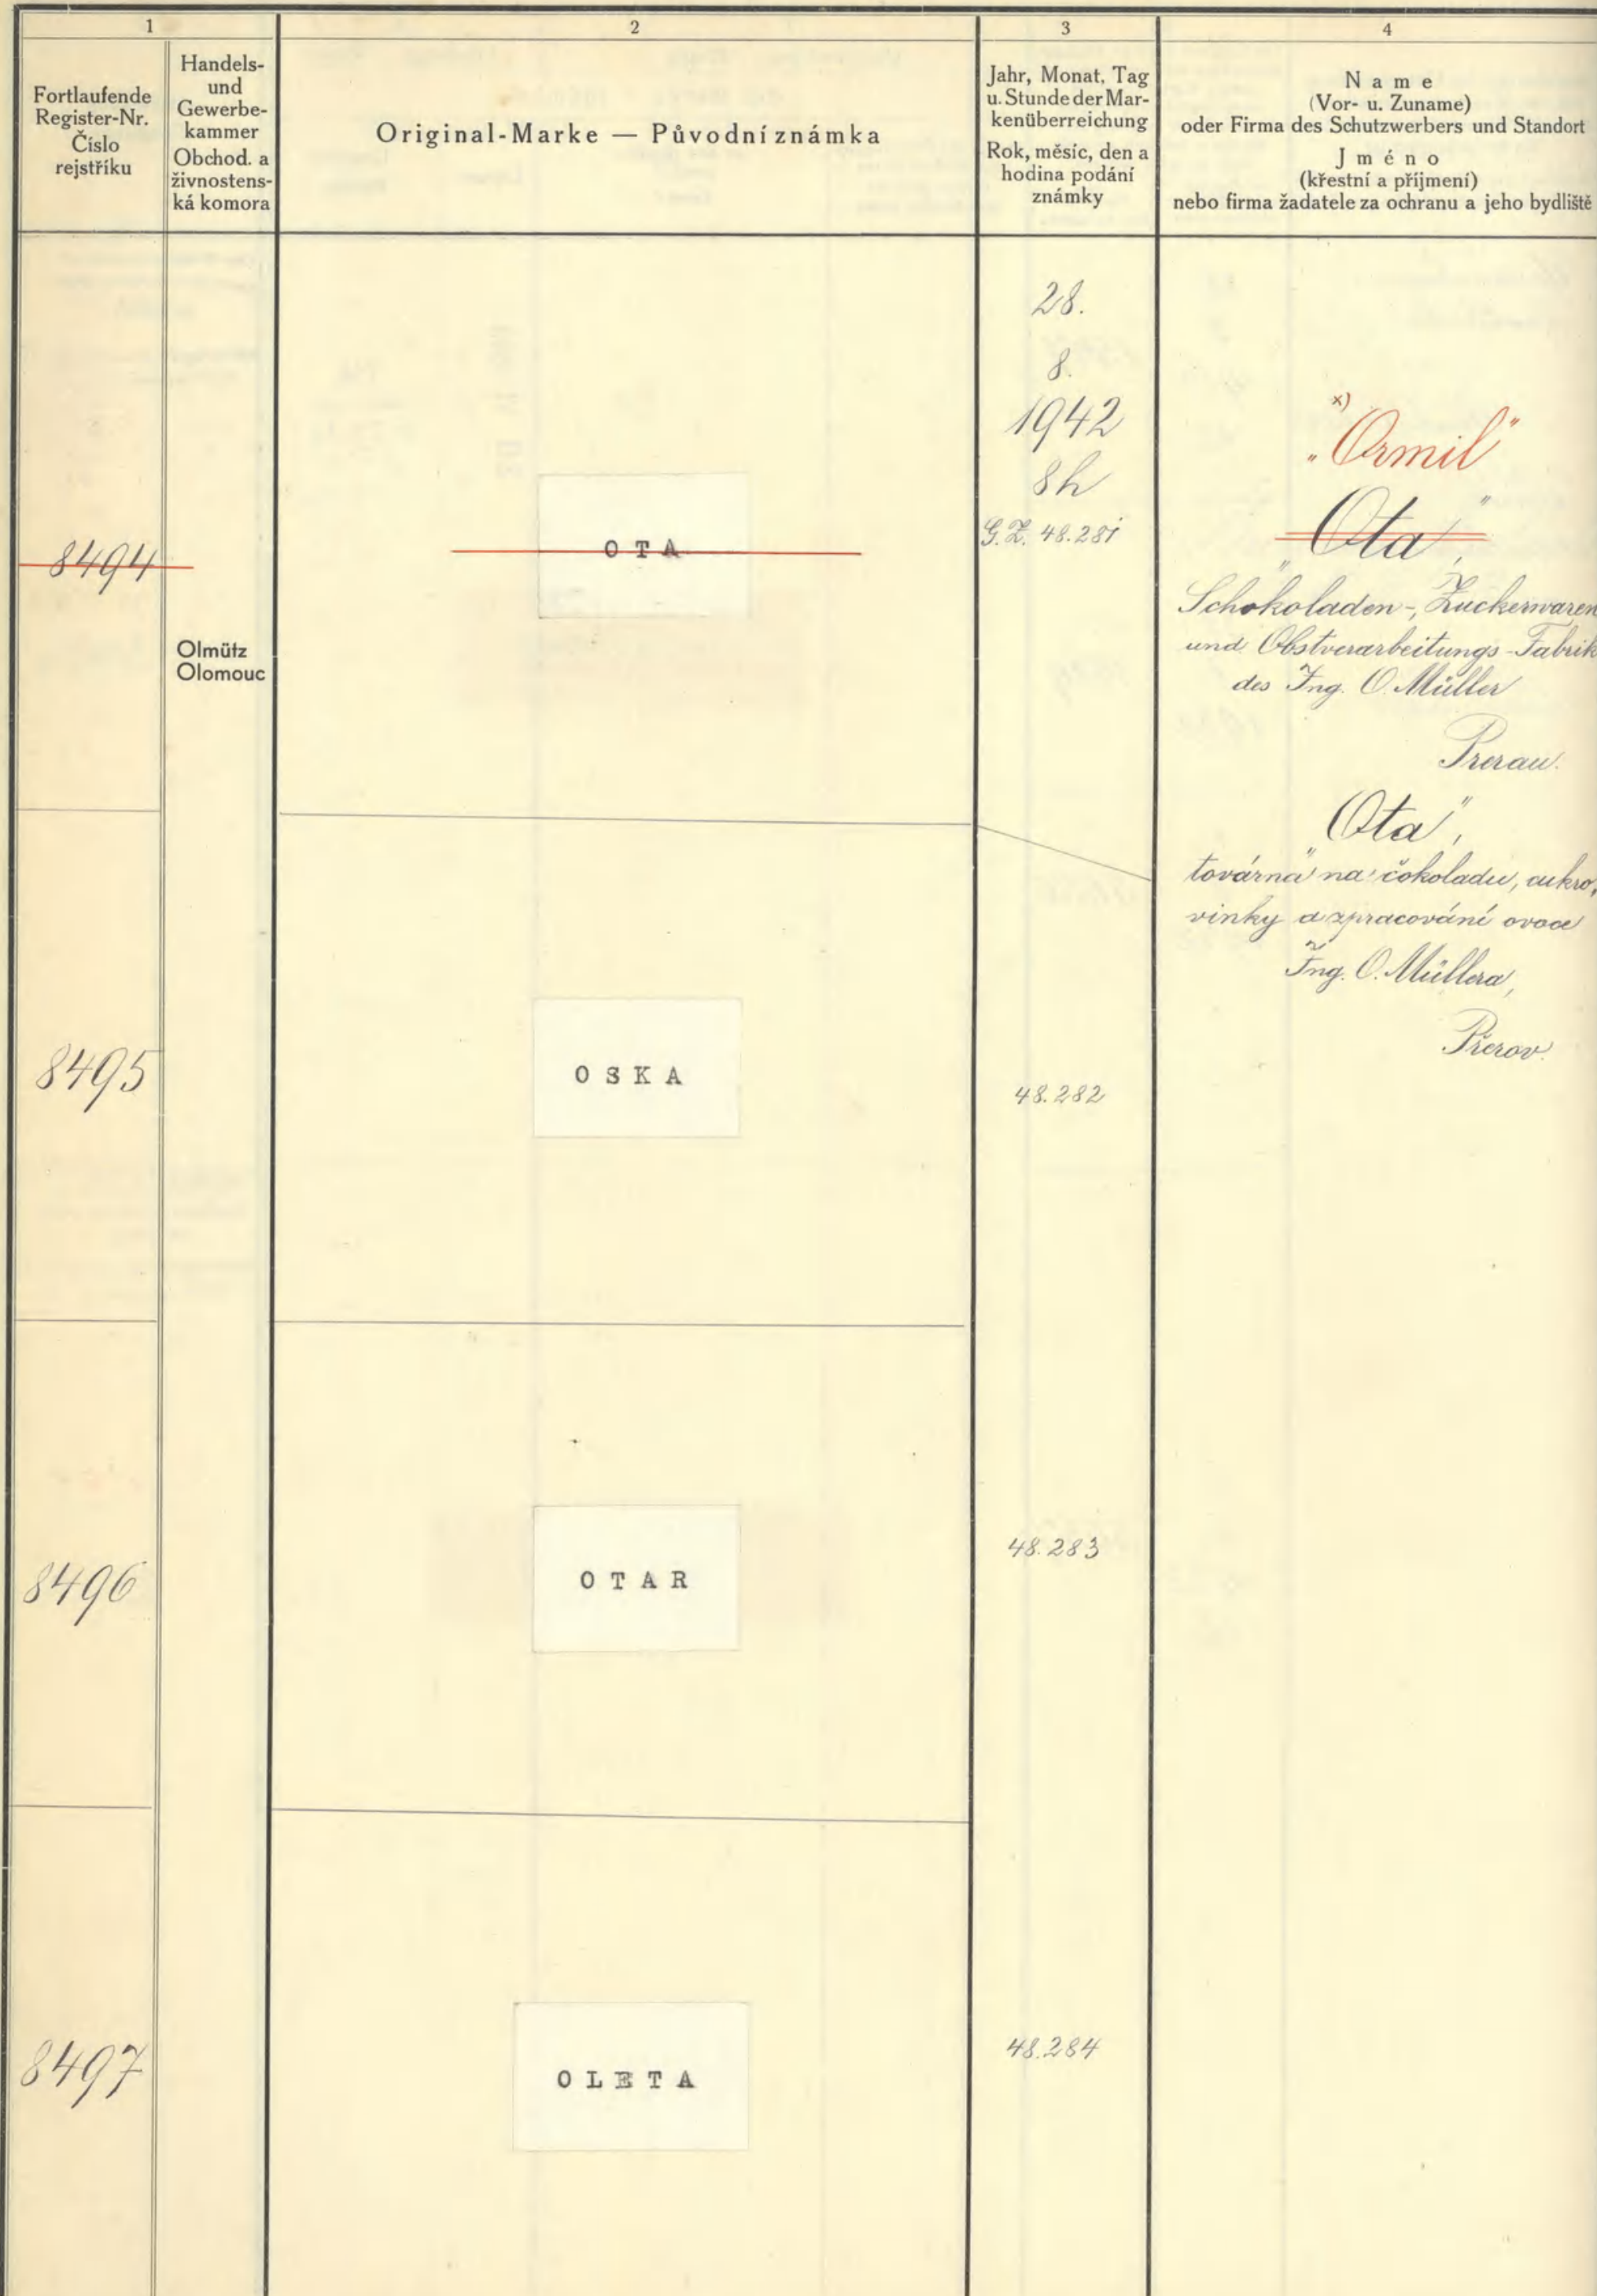 1
2
3
4
Fortlaufende
Register-Nr.
Číslo
rejstříku
Handels-
und
Gewerbe-
kammer
Obchod. a
živnostens-
ká komora
Original-Marke — Původní známka
Jahr, Monat, Tag
u. Stunde der Mar-
kenüberreichung
Rok, měsíc, den a
hodina podání
známky
Name
(Vor- u. Zuname)
oder Firma des Schutzwerbers und Standort
Jméno
(křestní a příjmení)
nebo firma žadatele za ochranu a jeho bydliště
28.
8.
1942
8h
G.Z. 48.281
8494
Olmütz
Olomouc
OTA
x)
"Ormil"
"Ota",
Schokoladen-, Zuckerwaren
und Obstverarbeitungs-Fabrik
des Ing. O. Müller
Prerau.
"Ota",
továrna na čokoladu, cukro,
vinky a zpracování ovoce
Ing. O. Müllera,
Přerov.
8495
OSKA
48.282
8496
OTAR
48.283
8497
OLETA
48.284